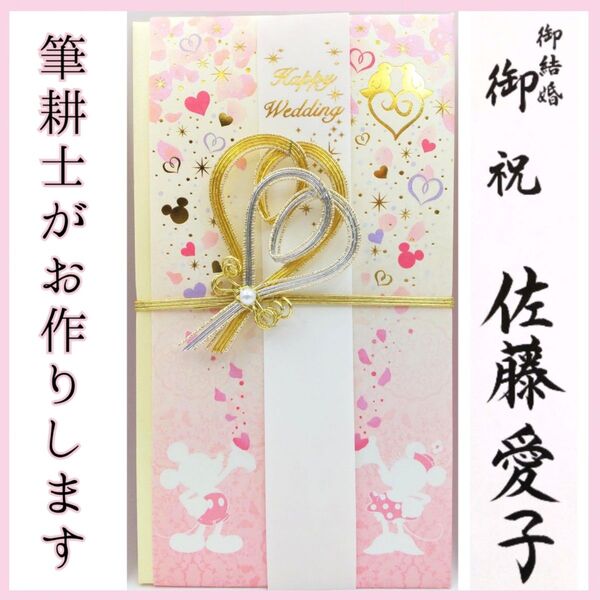 御結婚
御祝
佐藤愛子
Happy
Wedding
筆耕士がお作りします